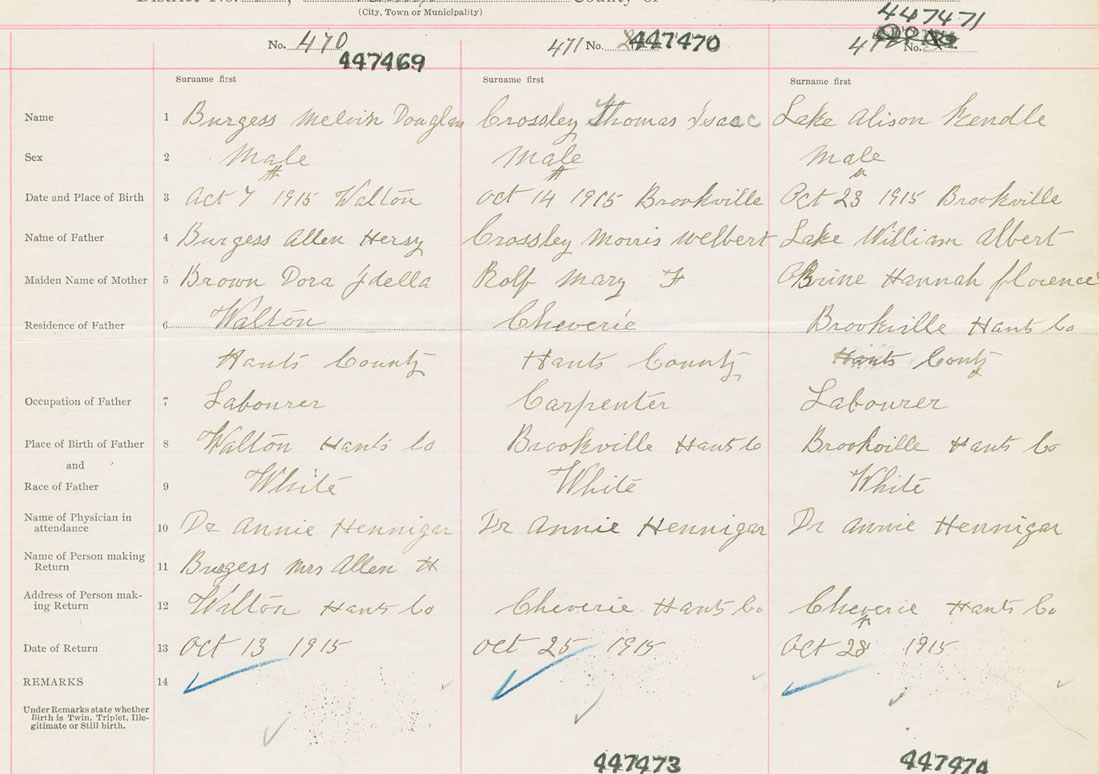 (City, Town or Municipality)
447471
No. 470 471 No. 447470 No.
447469
Surname first Surname first Surname first
Name 1 Burgess Melvin Douglas Crossley Thomas Isaac Lake Alison Kendle
Sex 2 Male Male Male
Date and Place of Birth 3 Oct 7 1915 Walton Oct 14 1915 Brookville Oct 23 1915 Brookville
Name of Father 4 Burgess Allen Hersy Crossley Morris Welbert Lake William Albert
Maiden Name of Mother 5 Brown Dora Idella Rolf Mary F OBrine Hannah florence
Residence of Father 6 Walton Cheverie Brookville Hants Co
Hants County Hants County Hants Conty
Occupation of Father 7 Labourer Carpenter Labourer
Place of Birth of Father 8 Walton Hants Co Brookville Hants Co Brookville Hants Co
and
Race of Father 9 White White White
Name of Physician in
attendance 10 Dr Annie Hennigar Dr Annie Hennigar Dr Annie Hennigar
Name of Person making
Return 11 Burgess Mrs Allen H
Address of Person mak-
ing Return 12 Walton Hants Co Cheverie Hants Co Cheverie Hants Co
Date of Return 13 Oct 13 1915 Oct 25 1915 Oct 28 1915
REMARKS 14
Under Remarks state whether
Birth is Twin, Triplet, Ille-
gitimate or Still birth.
447473 447474